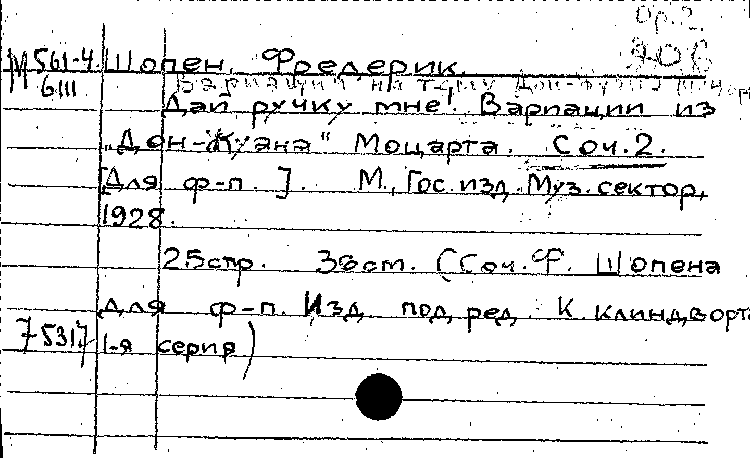 Op. 2.
М 561-4 Шопен, Фредерик. 306
6111 Вариации на тему Дон-Жуана Моцар
Дай ручку мне! Вариации из
„Дон-Жуана" Моцарта. Соч. 2.
[Для ф-п. ]. М., Гос. изд. Муз. сектор,
1928.
25 стр. 36 ст. (Соч. Ф. Шопена
для ф-п. Изд. под ред. К. Клиндворта
7531.7 1-я серия)